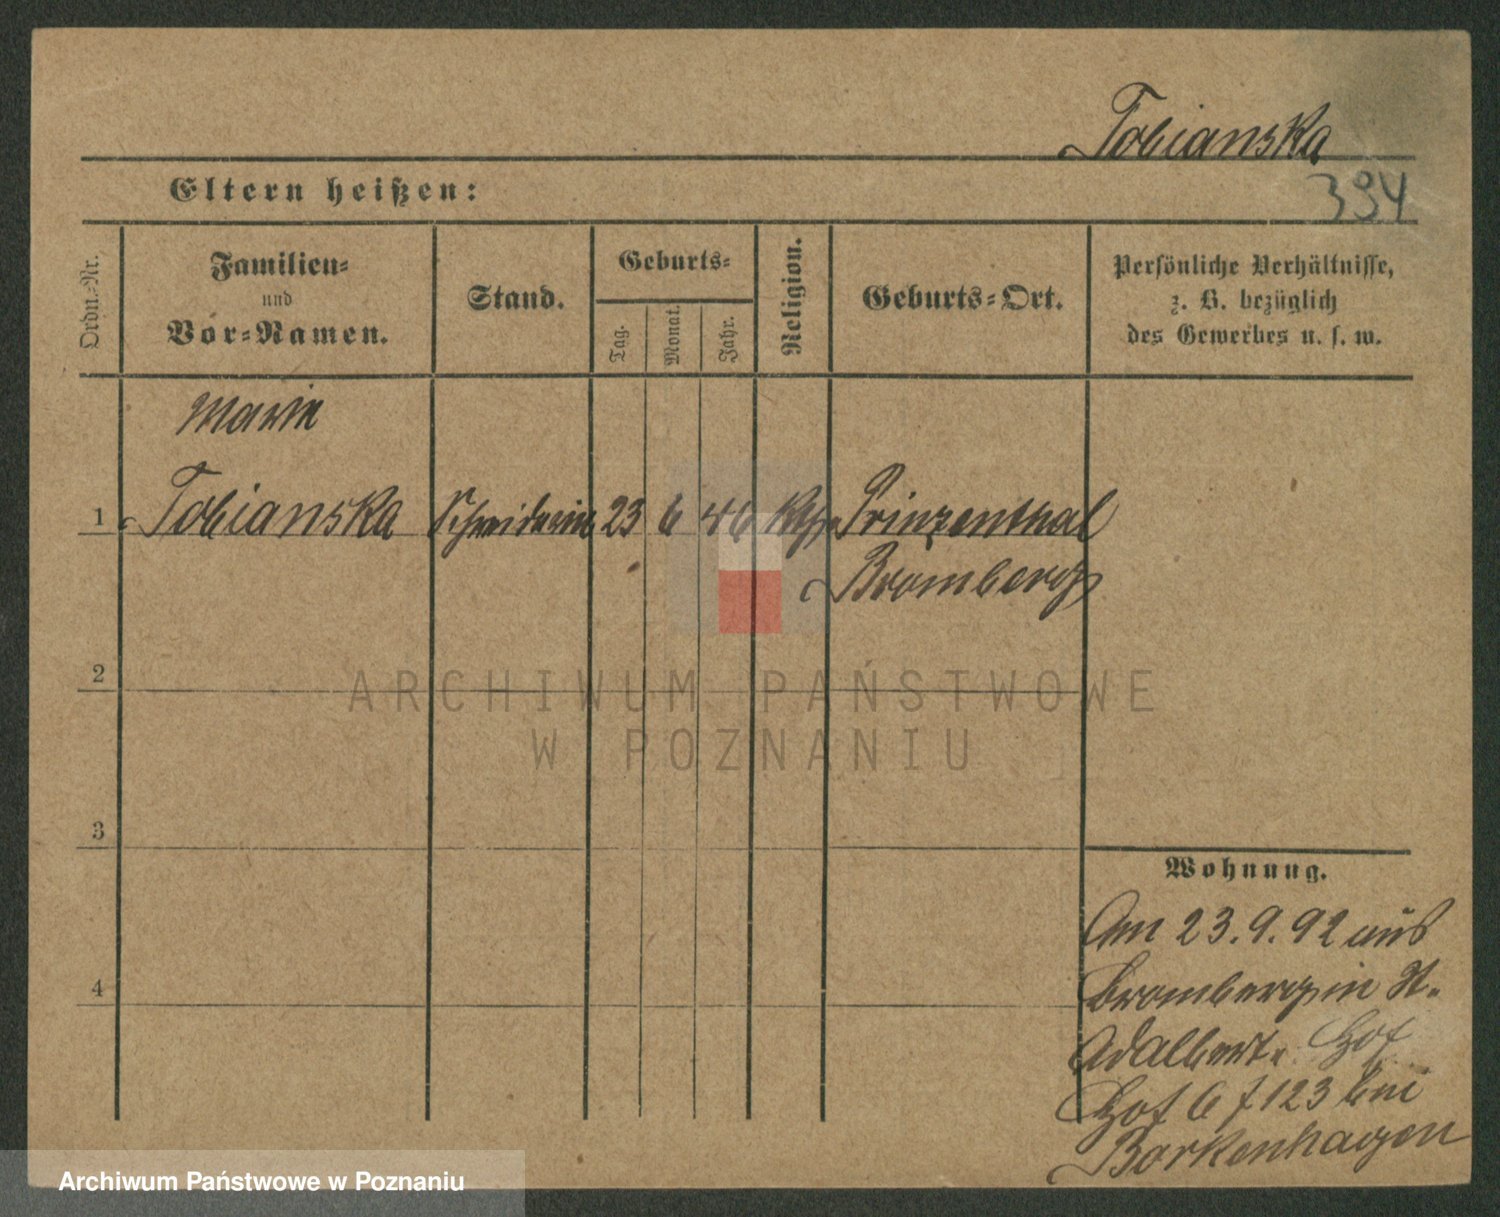 Tobianska
Eltern heißen:
394
Ordn.-Nr.
Familien-
und
Vor-Namen.
Stand.
Geburts-
Tag.
Monat.
Jahr.
Religion.
Geburts-Ort.
Persönliche Verhältnisse,
z. B. bezüglich
des Gewerbes u. s. w.
Marie
1 Tobianska Schneiderin 23 6 46 Prinzenthal
Bromberg
2
3
4
Wohnung.
Am 23.9.92 aus
Bromberg in St.
Adalbert. Hof
Hof 6 f 123 bei
Borkenhagen
ARCHIWUM PAŃSTWOWE
W POZNANIU
Archiwum Państwowe w Poznaniu